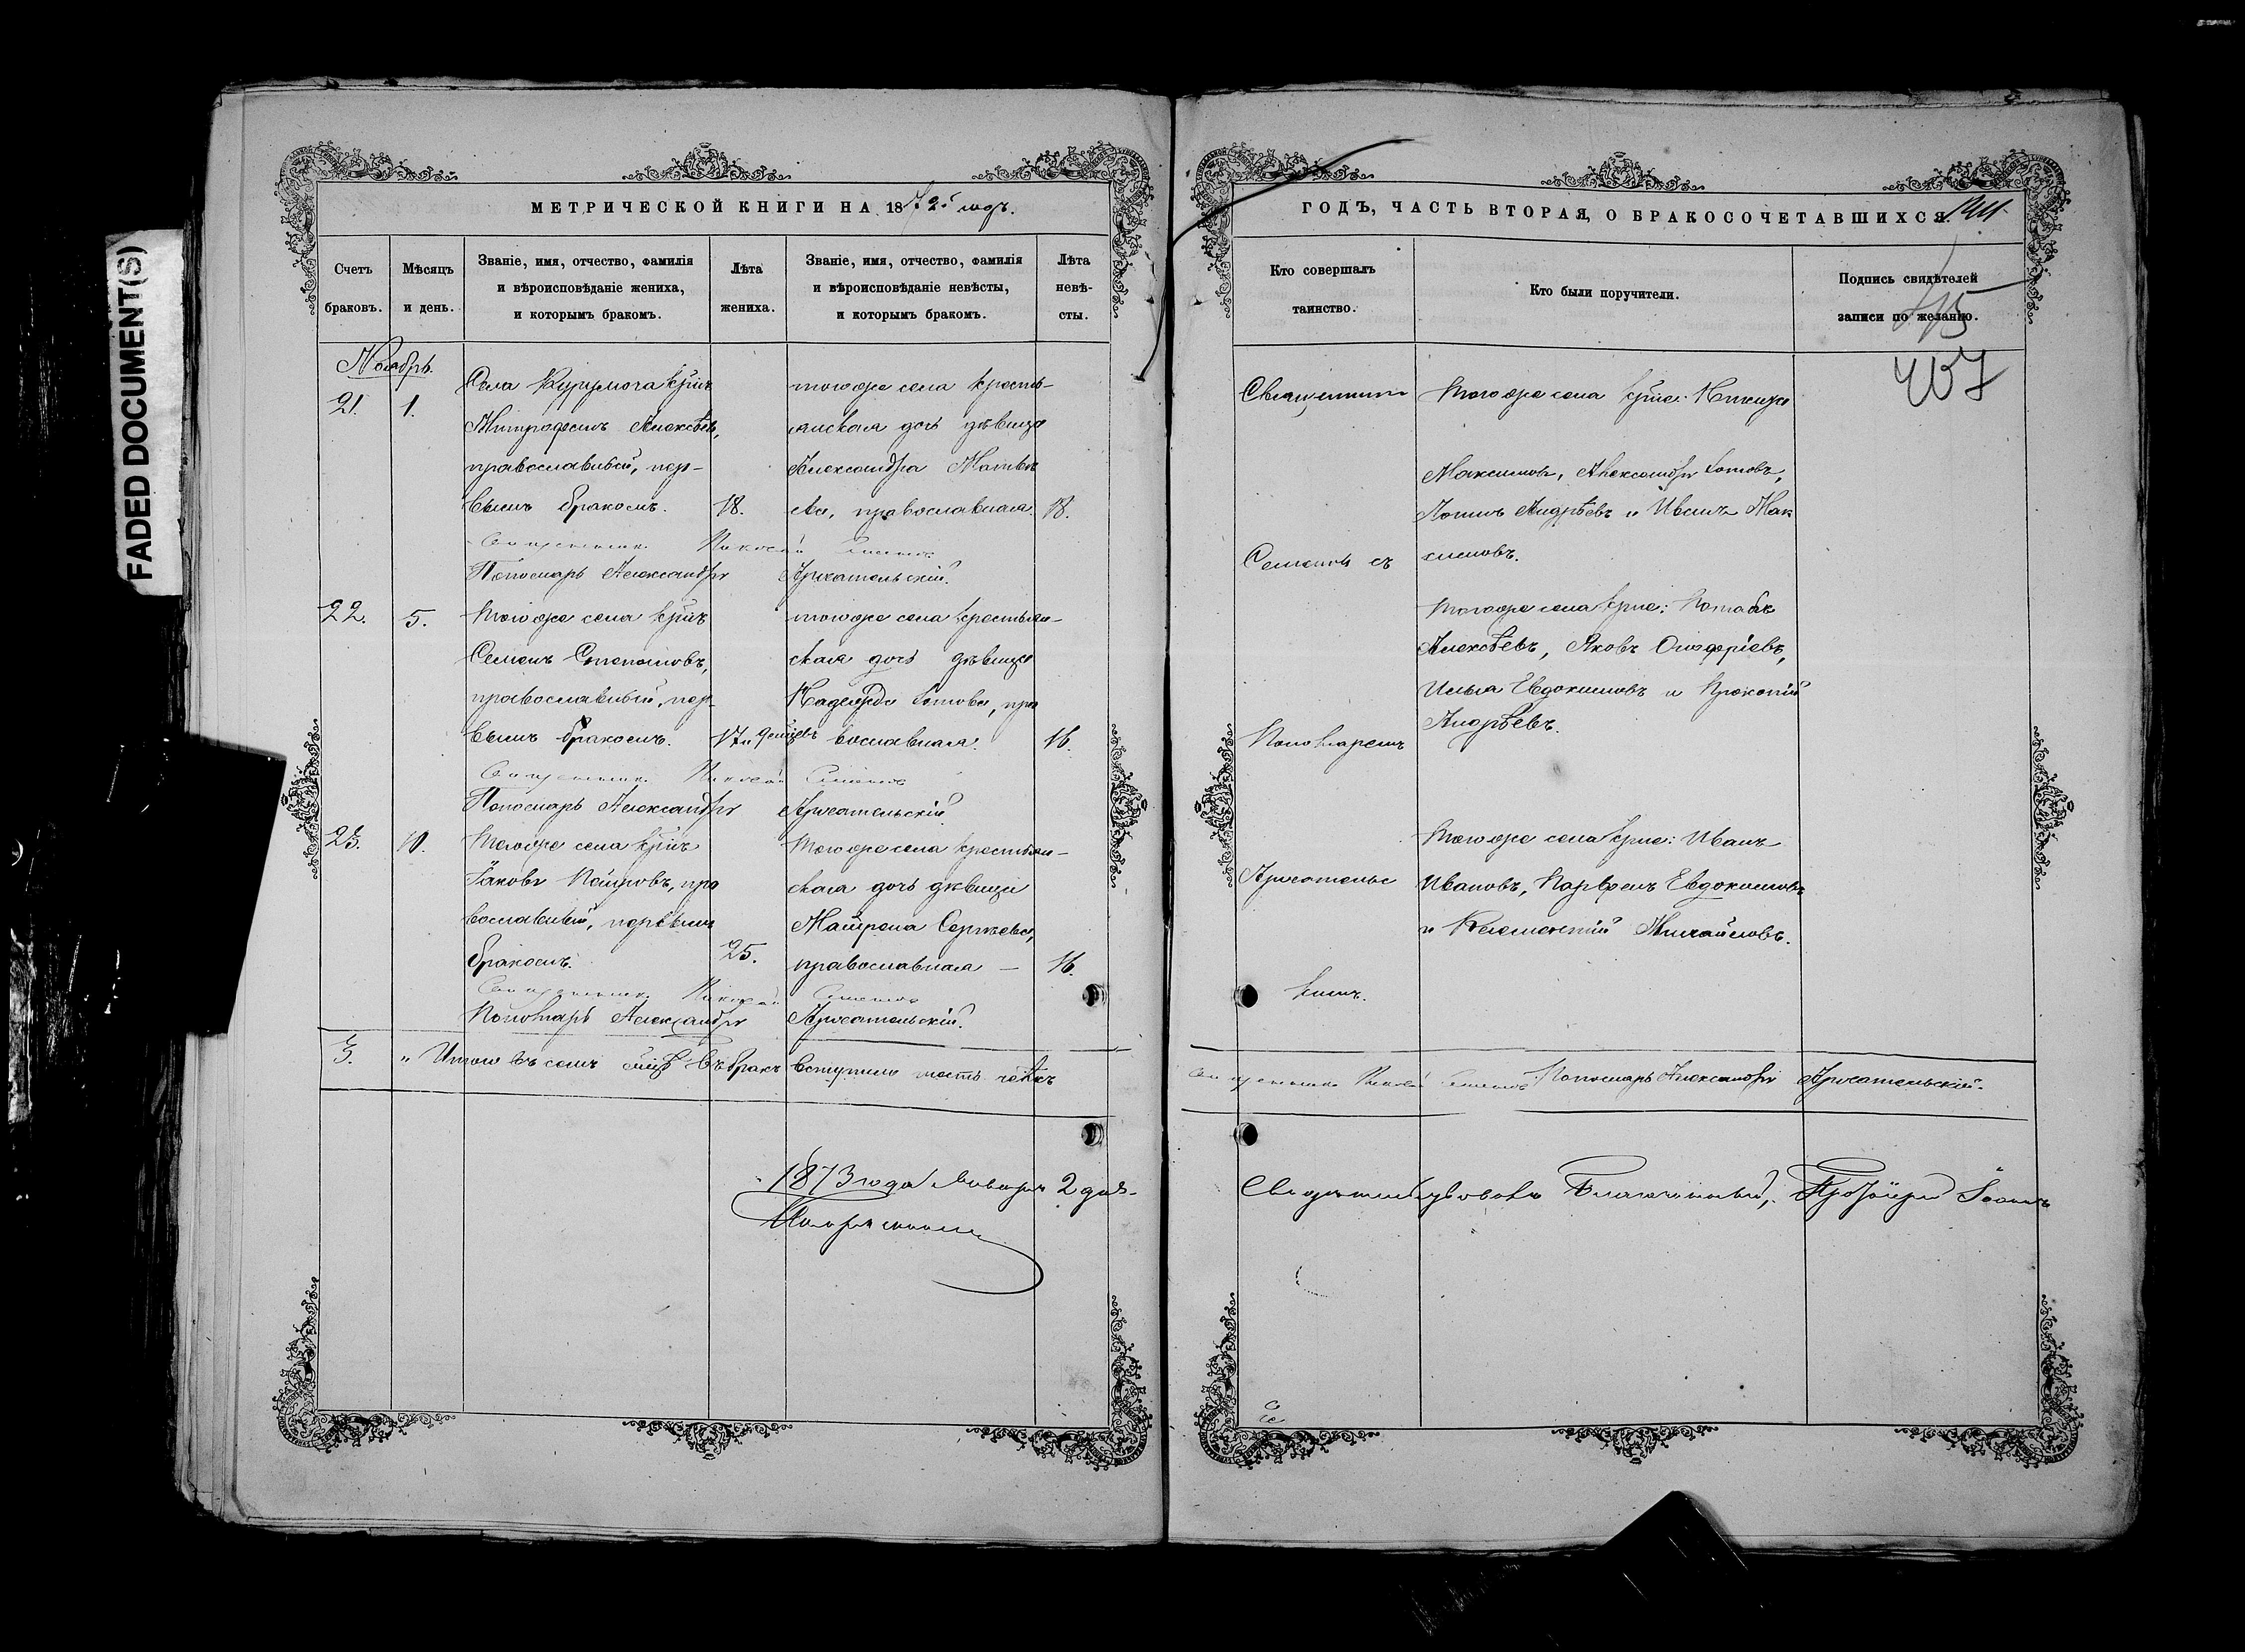 FADED DOCUMENT(S)
МЕТРИЧЕСКОЙ КНИГИ НА 1872й годъ.
Счетъ браковъ.
Мѣсяцъ и день.
Званіе, имя, отчество, фамилія
и вѣроисповѣданіе жениха,
и которымъ бракомъ.
Лѣта
жениха.
Званіе, имя, отчество, фамилія
и вѣроисповѣданіе невѣсты,
и которымъ бракомъ.
Лѣта
невѣ-
сты.
Ноябрь.
21. 1.
Села
Митрофанъ Алексѣевъ,
православный, пер-
вымъ бракомъ.
18.
тогоже села кресть-
янская дочь дѣвица
Александра Матвѣе
ва, православная.
18.
Священникъ Николай Семеновъ
Пономарь Александръ Архательскій.
22. 5.
Тогоже села
Семенъ Степановъ,
православный, пер-
вымъ бракомъ.
17
тогоже села крестьян-
ская дочь дѣвица
Надежда Котова, пра
вославная.
16.
Священникъ Николай Семеновъ
Пономарь Александръ Архательскій.
23. 10.
Тогоже села
Іаковъ Петровъ, пра
вославный, первымъ
бракомъ.
25.
Тогоже села крестьян-
ская дочь дѣвица
Матрона Сергѣева,
православная —
16.
Священникъ Николай Семеновъ
Пономарь Александръ Архательскій.
3. „ Итого въ семъ мцѣ въ бракъ вступило шесть
1873 года Января 2 дня
ГОДЪ, ЧАСТЬ ВТОРАЯ, О БРАКОСОЧЕТАВШИХСЯ.
Кто совершалъ
таинство.
Кто были поручители.
Подпись свидѣтелей
записи по желанію.
457
Священникъ
Семеновъ съ
Пономаремъ
Архательс
кимъ.
Тогоже села крес: Никита
Максимовъ, Александръ Котовъ,
Логинъ Андрѣевъ и Иванъ Мак
симовъ.
Тогоже села крес:
Алексѣевъ, Яковъ
Илья Евдокимовъ и Прокопій
Андрѣевъ.
Тогоже села крес: Иванъ
Ивановъ, Парфенъ Евдокимовъ
и Михайловъ.
Священникъ Николай Семеновъ Пономарь Александръ Архательскій.
Свидѣтельствовалъ Благочинный, Протоіерей Іоаннъ